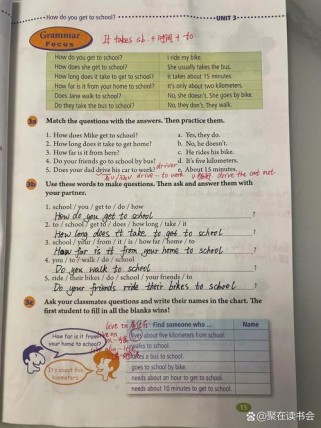 How do you get to school?
UNIT 3
Grammar
Focus
It takes sb. + 时间 + to
How do you get to school? I ride my bike.
How does she get to school? She usually takes the bus.
How long does it take to get to school? It takes about 15 minutes.
How far is it from your home to school? It's only about two kilometers.
Does Jane walk to school? No, she doesn't. She goes by bike.
Do they take the bus to school? No, they don't. They walk.
3a Match the questions with the answers. Then practice them.
1. How does Mike get to school? a. Yes, they do.
2. How long does it take to get home? b. No, he doesn't.
3. How far is it from here? c. He rides his bike.
4. Do your friends go to school by bus? d. It's five kilometers.
driver
5. Does your dad drive his car to work? e. About 15 minutes.
drive to work
3b Use these words to make questions. Then ask and answer them with
your partner.
1. school / you / get to / do / how
How do you get to school ?
2. to / school / get to / does / how long / take / it
How long does it take to get to school ?
3. school / your / from / it / is / how far / home / to
How far is it from your home to school ?
4. you / to / walk / do / school
Do you walk to school ?
5. ride / their / bikes / do / school / your friends / to
Do your friends ride their bikes to school ?
3c Ask your classmates questions and write their names in the chart. The
first student to fill in all the blanks wins!
live in
Find someone who ... Name
How far is it from
your home to school?
It's about five
kilometers.
lives about five kilometers from school.
walks to school.
takes a bus to school.
goes to school by bike.
needs about an hour to get to school.
needs about 10 minutes to get to school.
15
@聚在读书会